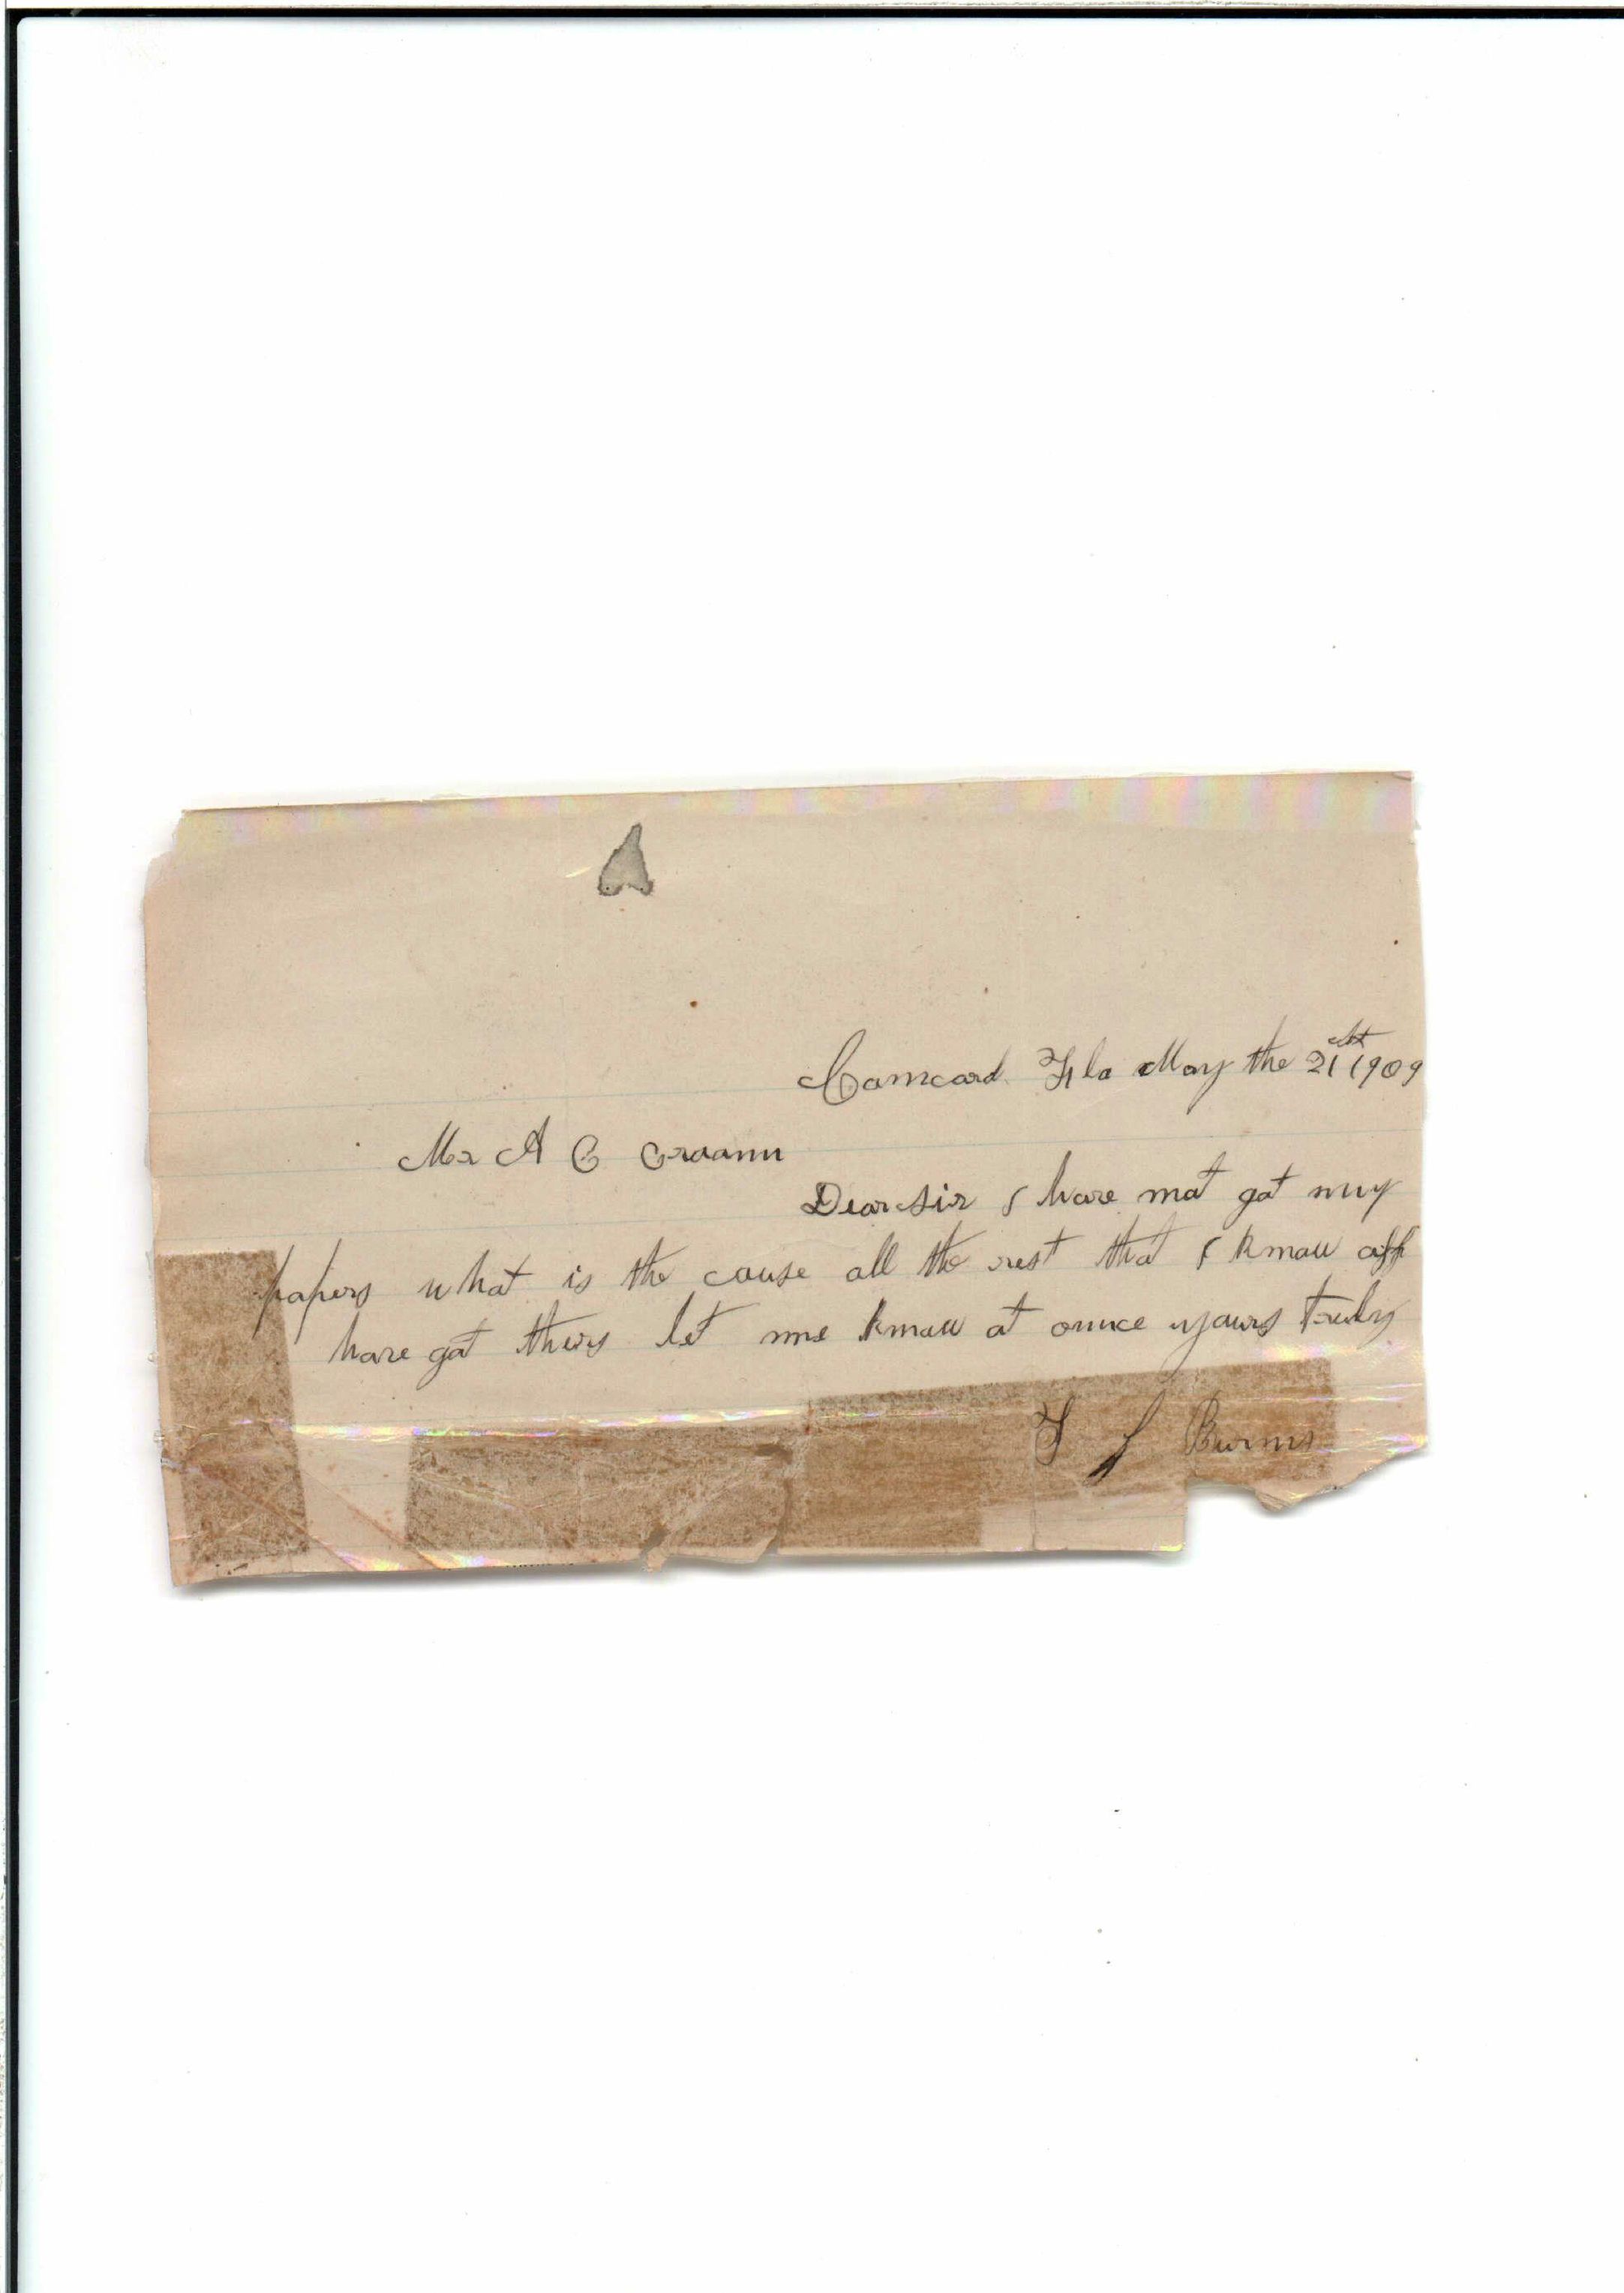 Concord Fla May the 21st 1909
Mr A C Croom
Dear sir I have not got my
papers what is the cause all the rest that I know off
have got thirs let me know at onnce yours truly
F L Burns